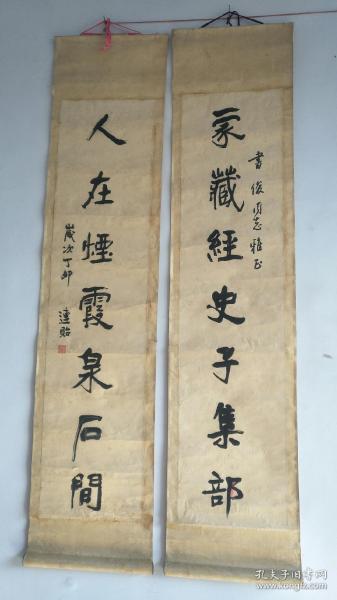 家藏經史子集部
書俊同志雅正
人在煙霞泉石間
歲次丁卯
達貽
孔夫子旧书网